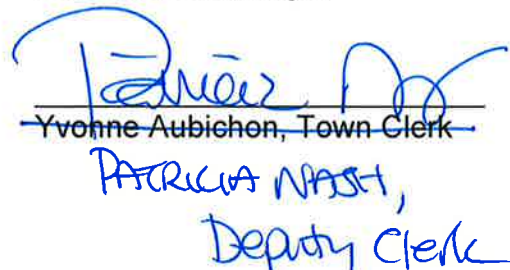 Patricia N
Yvonne Aubichon, Town Clerk
PATRICIA NASH,
Deputy Clerk